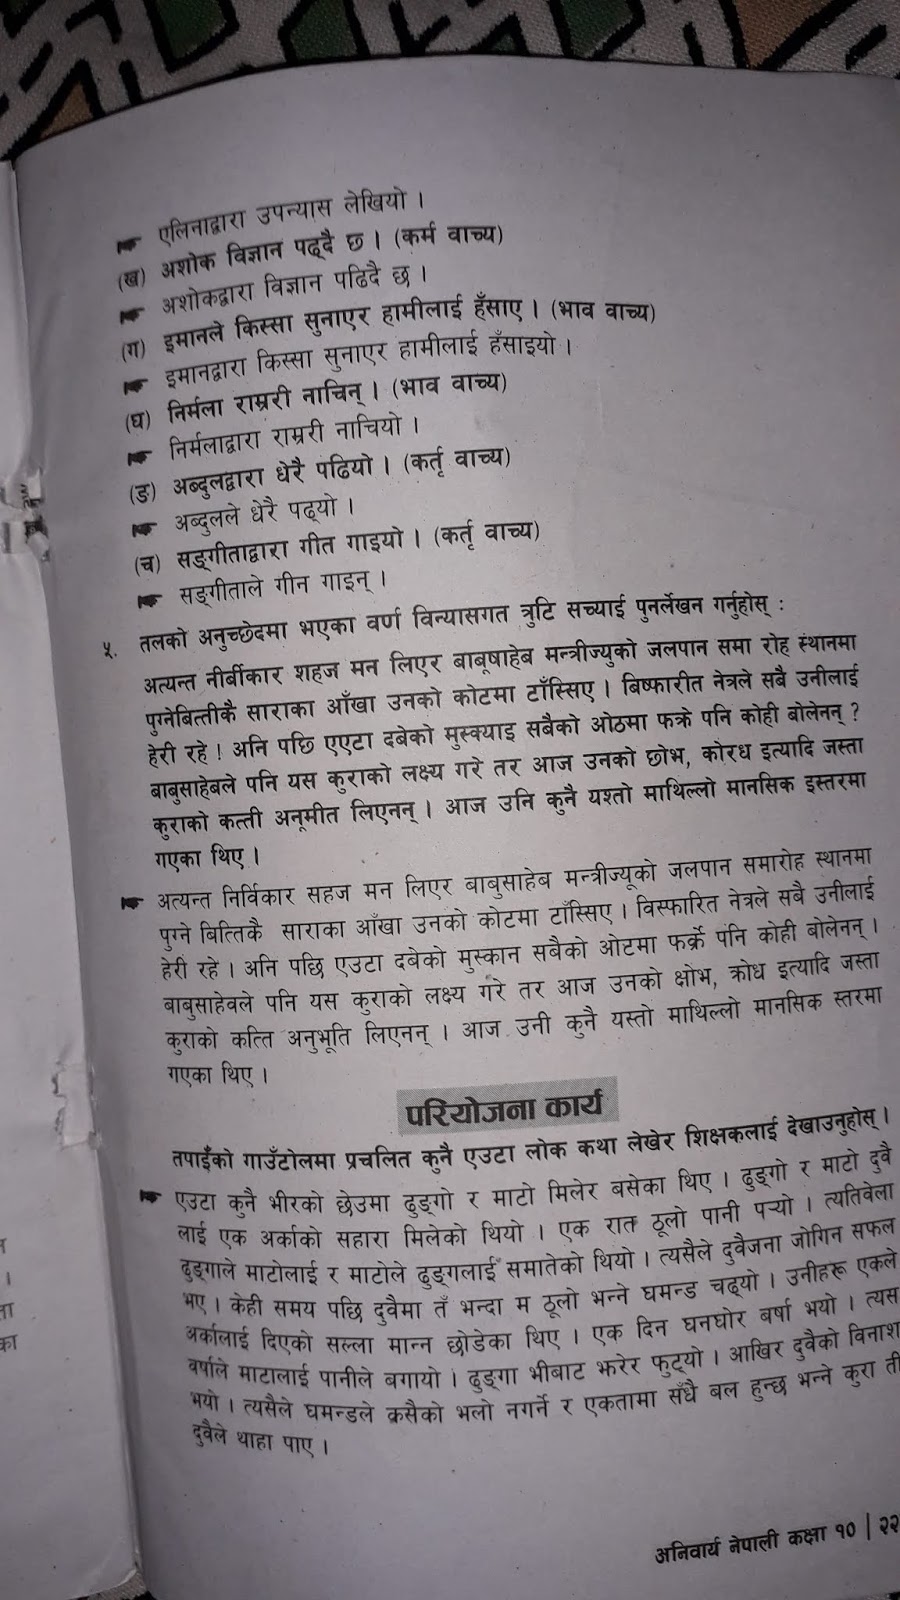 एलिनाद्वारा उपन्यास लेखियो ।
(ख) अशोक विज्ञान पढ्दै छ । (कर्म वाच्य)
अशोकद्वारा विज्ञान पढिदै छ ।
(ग) इमानले किस्सा सुनाएर हामीलाई हँसाए । (भाव वाच्य)
इमानद्वारा किस्सा सुनाएर हामीलाई हँसाइयो ।
(घ) निर्मला राम्ररी नाचिन् । (भाव वाच्य)
निर्मलाद्वारा राम्ररी नाचियो ।
(ङ) अब्दुलद्वारा धेरै पढियो । (कर्तृ वाच्य)
अब्दुलले धेरै पढ्यो ।
(च) सङ्गीताद्वारा गीत गाइयो । (कर्तृ वाच्य)
सङ्गीताले गीन गाइन् ।
५. तलको अनुच्छेदमा भएका वर्ण विन्यासगत त्रुटि सच्याई पुनर्लेखन गर्नुहोस् :
अत्यन्त नीर्बीकार शहज मन लिएर बाबूषाहेब मन्त्रीज्युको जलपान समा रोह स्थानमा
पुग्नेबित्तीकै साराका आँखा उनको कोटमा टाँस्सिए । बिष्फारीत नेत्रले सबै उनीलाई
हेरी रहे ! अनि पछि एएटा दबेको मुस्क्याइ सबैको ओठमा फक्रे पनि कोही बोलेनन् ?
बाबुसाहेबले पनि यस कुराको लक्ष्य गरे तर आज उनको छोभ, कोरध इत्यादि जस्ता
कुराको कत्ती अनूमीत लिएनन् । आज उनि कुनै यश्तो माथिल्लो मानसिक इस्तरमा
गएका थिए ।
अत्यन्त निर्विकार सहज मन लिएर बाबुसाहेब मन्त्रीज्यूको जलपान समारोह स्थानमा
पुग्ने बित्तिकै साराका आँखा उनको कोटमा टाँस्सिए । विस्फारित नेत्रले सबै उनीलाई
हेरी रहे । अनि पछि एउटा दबेको मुस्कान सबैको ओटमा फर्क्रे पनि कोही बोलेनन् ।
बाबुसाहेवले पनि यस कुराको लक्ष्य गरे तर आज उनको क्षोभ, क्रोध इत्यादि जस्ता
कुराको कत्ति अनुभूति लिएनन् । आज उनी कुनै यस्तो माथिल्लो मानसिक स्तरमा
गएका थिए ।
परियोजना कार्य
तपाईँको गाउँटोलमा प्रचलित कुनै एउटा लोक कथा लेखेर शिक्षकलाई देखाउनुहोस् ।
एउटा कुनै भीरको छेउमा ढुङ्गो र माटो मिलेर बसेका थिए । ढुङ्गो र माटो दुवै
लाई एक अर्काको सहारा मिलेको थियो । एक रात ठूलो पानी पऱ्यो । त्यतिवेला
ढुङ्गाले माटोलाई र माटोले ढुङ्गलाई समातेको थियो । त्यसैले दुवैजना जोगिन सफल
भए । केही समय पछि दुवैमा तँ भन्दा म ठूलो भन्ने घमन्ड चढ्यो । उनीहरू एकले
अर्कालाई दिएको सल्ला मान्न छोडेका थिए । एक दिन घनघोर बर्षा भयो । त्यस
वर्षाले माटालाई पानीले बगायो । ढुङ्गा भीबाट झरेर फुट्यो । आखिर दुवैको विनाश
भयो । त्यसैले घमन्डले कसैको भलो नगर्ने र एकतामा सँधै बल हुन्छ भन्ने कुरा ती
दुवैले थाहा पाए ।
अनिवार्य नेपाली कक्षा १० | २२